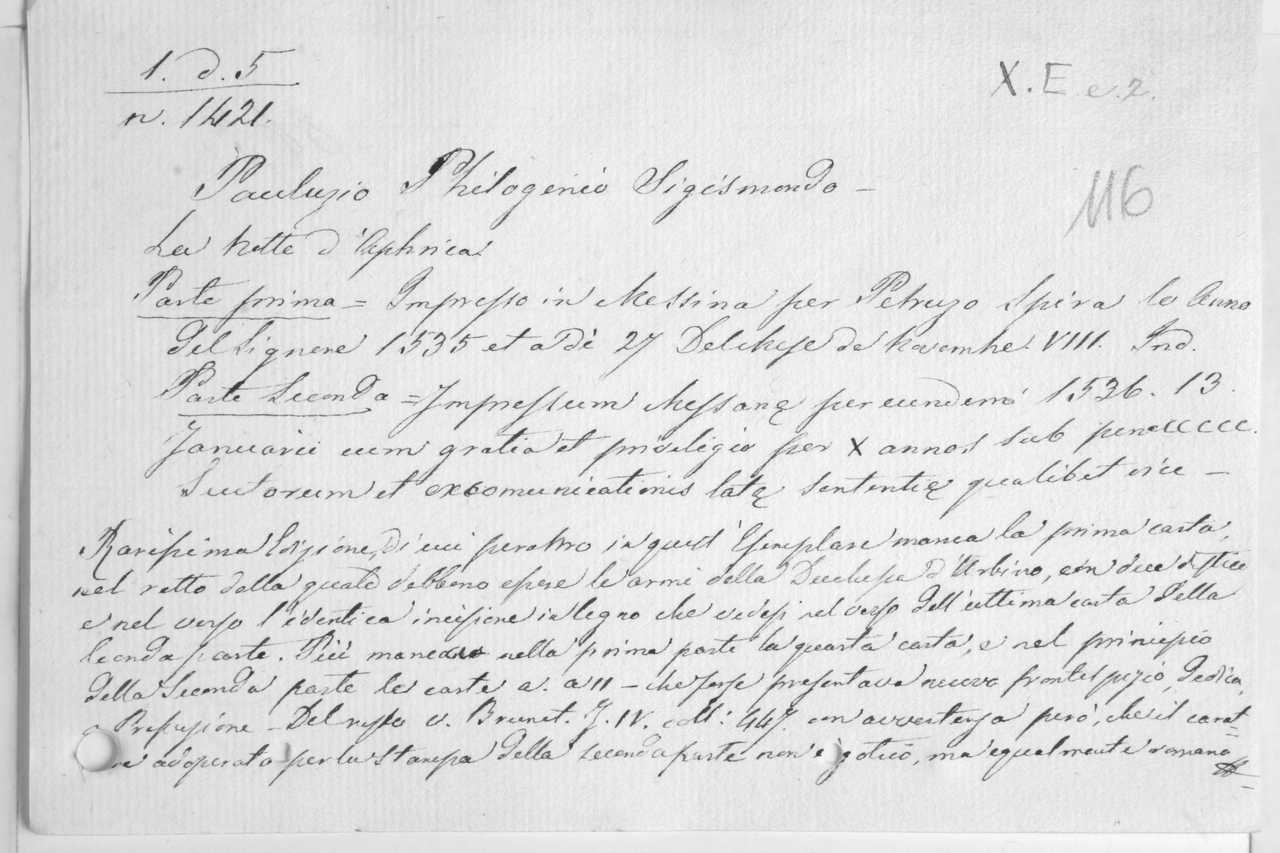 1. d. 5
n. 1421.
X. E e. 2.
116
Pauluzio Philogenio Sigismondo –
La Notte d'Aphrica
Parte prima = Impresso in Messina per Petruzo Spira lo Anno
del Signore 1535 et a dì 27 Del Mese de Novembre. VIII. Ind.
Parte Seconda = Impressum Messanę per eundem 1536. 13.
Januarii cum gratia et privilegio per X annos sub pena CCCC.
Scutorum et excomunicationis latę sententię qualibet vice –
Rarissima Edizione, di cui peraltro in quest'Esemplare manca la prima carta,
nel retto della quale debbono essere le armi della Duchessa d'Urbino, con due distici
e nel verso l'identica incisione in legno che vedesi nel verso dell'ultima carta della
Seconda parte. Più manca nella prima parte la quarta carta, e nel principio
della Seconda parte le carte a. a II – che forse presentava nuovo frontespizio, Dedica,
o Prefazione – Del resto v. Brunet. T. IV. coll: 447. con avvertenza però, che il carat=
re adoperato per la stampa della seconda parte non è gotico, ma egualmente romano